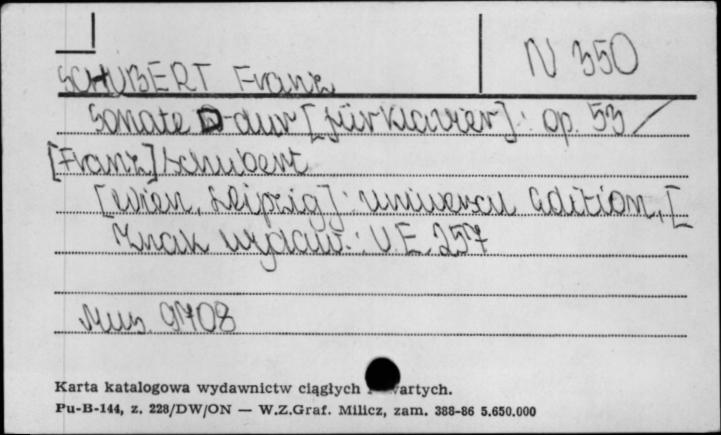 N 350
SCHUBERT Franz
Sonate D-dur [für Klavier] : op. 53 /
[Franz] Schubert
[Wien, Leipzig] : Universal Edition, [
Znak wydaw. : U.E. 257
Mus. 9708
Karta katalogowa wydawnictw ciągłych zwartych.
Pu-B-144, z. 228/DW/ON — W.Z.Graf. Milicz, zam. 388-86 5.650.000